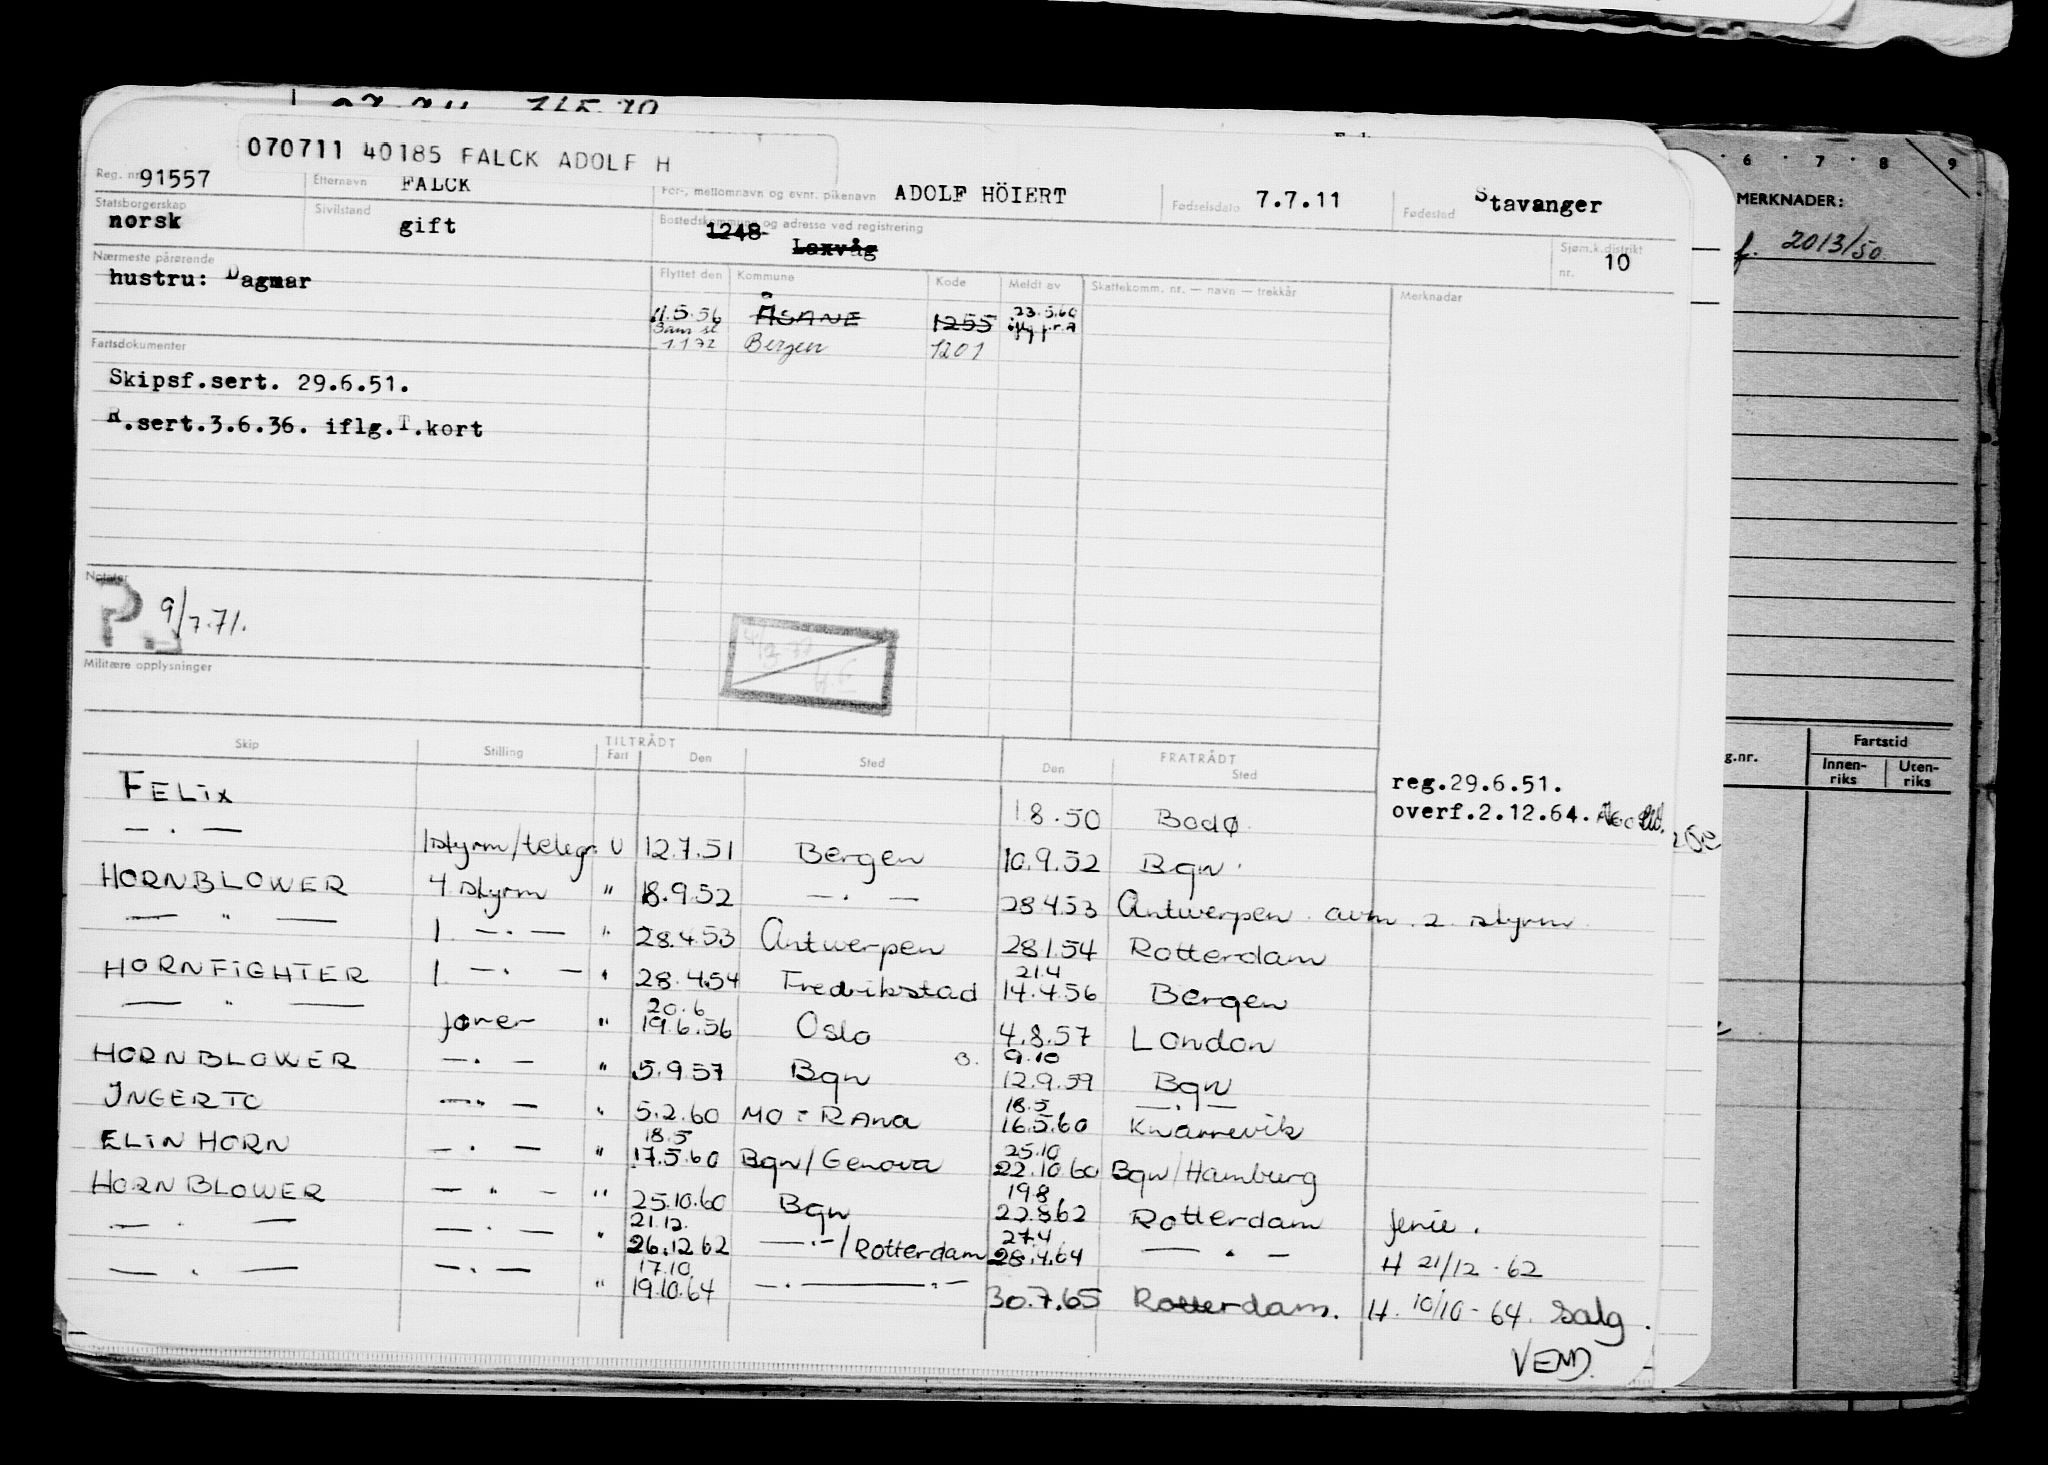 070711 40185 FALCK ADOLF H
Reg. nr. 91557 Etternavn FALCK For-, mellomnavn og evnt. pikenavn ADOLF HÖIERT Fødselsdato 7.7.11 Fødested Stavanger
Statsborgerskap norsk Sivilstand gift Bostedskommune og adresse ved registrering 1248 Laxvåg Sjøm.k.distrikt nr. 10
Nærmeste pårørende
hustru: Dagmar
Flyttet den Kommune Kode Meldt av Skattekomm. nr. — navn — trekkår Merknader
11.5.56 ÅSANE 1255 23.5.60
1.1 72 Bergen 1201
Fartsdokumenter
Skipsf.sert. 29.6.51.
R.sert.3.6.36. iflg.T.kort
Notater
P. 9/7.71.
Militære opplysninger
TILTRÅDT FRATRÅDT
Skip Stilling Fart Den Sted Den Sted
reg.29.6.51.
overf.2.12.64.
FELIX 1 8.50 Bodø
— . — 1styrm/telegr. U 12.7.51 Bergen 10.9.52 Bgn.
HORNBLOWER 4 styrm " 18.9.52 — . — 28.4.53 Antwerpen. avm. 2. styrm.
— " — 1. — . — " 28.4.53 Antwerpen 28.1.54 Rotterdam
HORNFIGHTER 1 — . — " 28.4.54 Fredrikstad 21.4 14.4.56 Bergen
— " — fører " 20.6 19.6.56 Oslo 4.8.57 London
HORNBLOWER — . — " 5.9.57 Bgn B. 9.10 12.9.59 Bgn
INGERTO — " — " 5.2.60 MO i RANA 18.5 16.5.60 — . — Knarrevik
ELIN HORN — . — " 18.5 17.5.60 Bgn/Genova 25.10 22.10.60 Bgn/Hamburg
HORNBLOWER — " — " 25.10.60 Bgn 19.8 22.8.62 Rotterdam ferie.
— . — — . — " 21.12. 26.12.62 — . —/Rotterdam 27.4. 28.4.64 — " — H 21/12.62
— . — — . — " 17.10 19.10.64 — . — . — 30.7.65 Rotterdam. H. 10/10-64. Salg.
VEND.
6 7 8 9
MERKNADER:
f. 2013/50
g.nr. Fartstid
Innenriks Utenriks